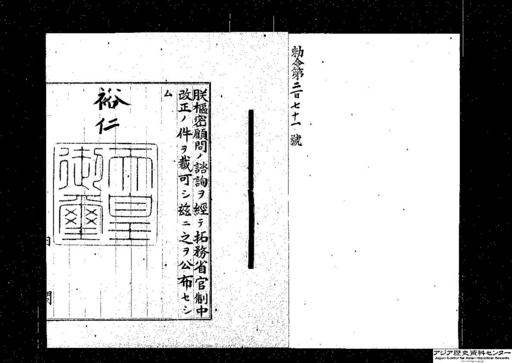 勅令第二百七十一號
朕樞密顧問ノ諮詢ヲ經テ拓務省官制中
改正ノ件ヲ裁可シ茲ニ之ヲ公布セシ
ム
裕仁
天皇
御璽
アジア歴史資料センター
Japan Center for Asian Historical Records